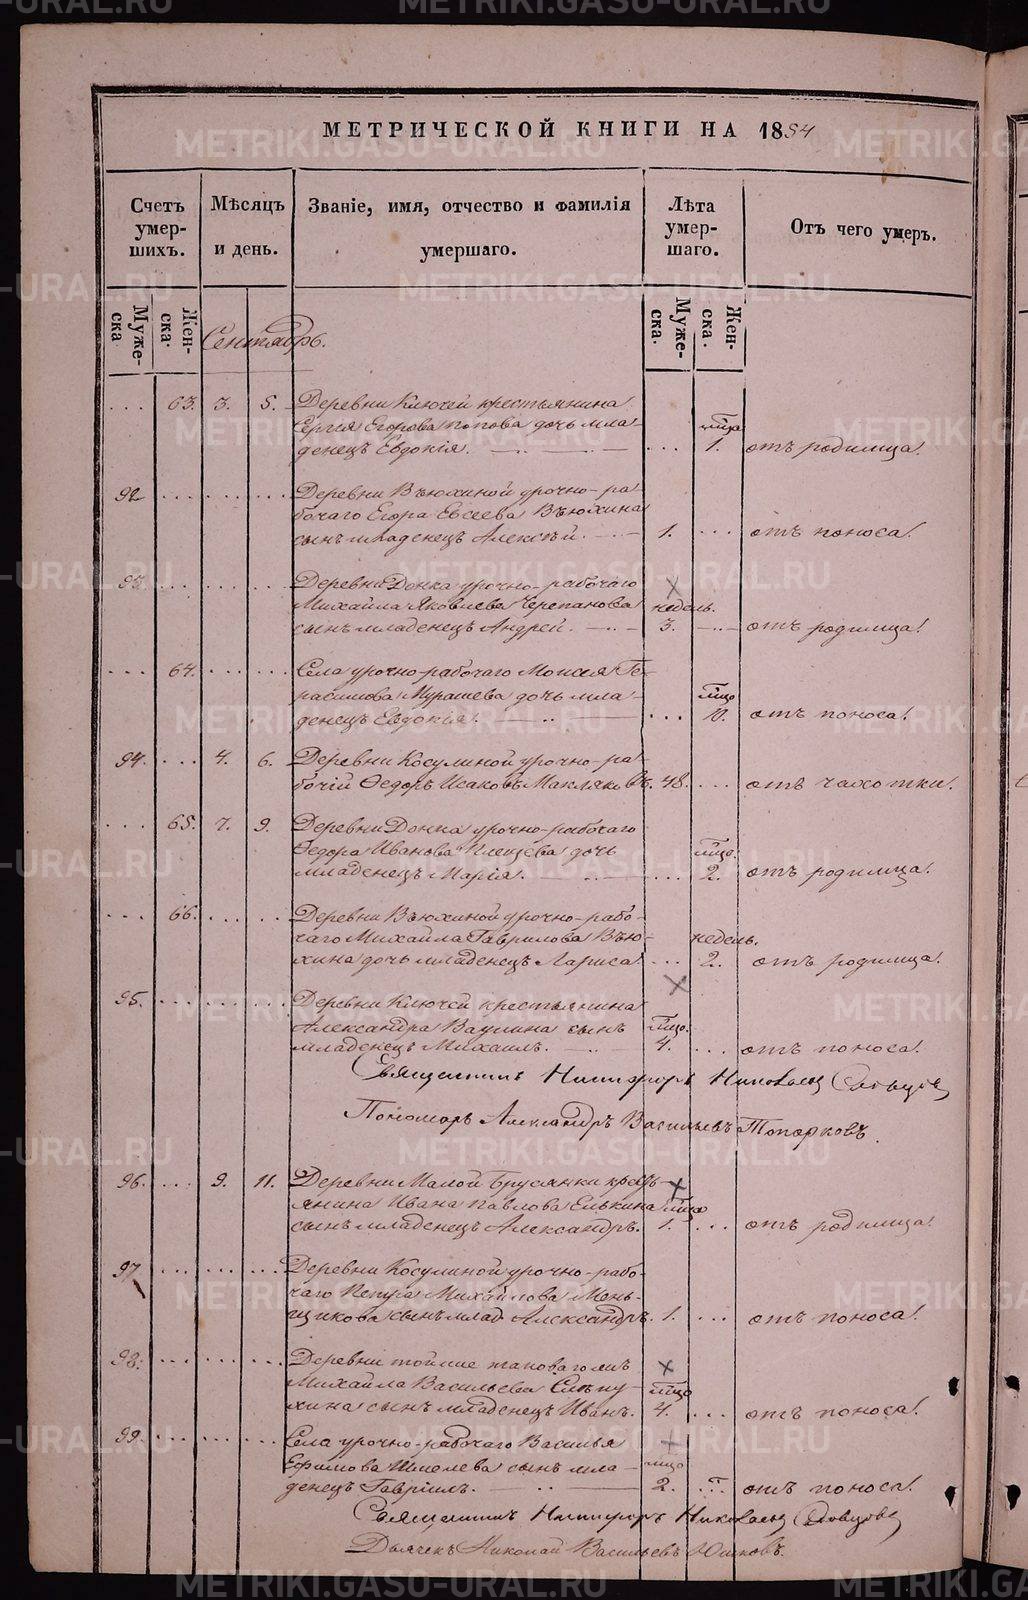 МЕТРИЧЕСКОЙ КНИГИ НА 1884
Счетъ умер-шихъ.
Мѣсяцъ и день.
Званіе, имя, отчество и фамилія умершаго.
Лѣта умер-шаго.
Отъ чего умеръ.
Муже-ска
Жен-ска.
Муже-ска.
Жен-ска.
Сентябрь.
63. 3. 5. Деревни Ключей крестьянина
Сергія Егорова Попова дочь мла-
денецъ Евдокія. 1. отъ родимца.
92 Деревни Вьюхиной урочно-ра-
бочаго Егора Евсеева Вьюхина
сынъ младенецъ Алексѣй. 1. отъ поноса.
93. Деревни Донка урочно-рабочаго
Михайла Яковлева Черепанова недель.
сынъ младенецъ Андрей. 3. отъ родимца.
64. Села урочно-рабочаго Моисея Ге-
расимова Мурашева дочь мла-
денецъ Евдокія. 10. отъ поноса.
94. 4. 6. Деревни Косулиной урочно-ра-
бочій Ѳедоръ Исаковъ Макляковъ. 48. отъ чахотки.
65. 7. 9. Деревни Донка урочно-рабочаго
Ѳедора Иванова Плещева дочь
младенецъ Марія. 2. отъ родимца.
66. Деревни Вьюхиной урочно-рабо-
чаго Михайла Гаврилова Вью- недель.
хина дочь младенецъ Лариса. 2. отъ родимца.
95. Деревни Ключей крестьянина
Александра Ваулина сынъ
младенецъ Михаилъ. 4. отъ поноса.
Священникъ Никифоръ Николаевъ Словцовъ
Пономарь Александръ Васильевъ Топорковъ.
96. 9. 11. Деревни Малой Брусянки крест-
янина Ивана Павлова Елькина
сынъ младенецъ Александръ. 1. отъ родимца.
97 Деревни Косулиной урочно-рабо-
чаго Петра Михайлова Мень-
щикова сынъ млад. Александръ. 1. отъ поноса.
98. Деревни
Михайла Васильева Слѣпу-
хина сынъ младенецъ Иванъ. 4. отъ поноса.
99. Села урочно-рабочаго Василья
Ефимова Шмелева сынъ мла-
денецъ Гавріилъ. 2. отъ поноса.
Священникъ Никифоръ Николаевъ Словцовъ
Дьячекъ Николай Васильевъ Юшковъ.
METRIKI.GASO-URAL.RU